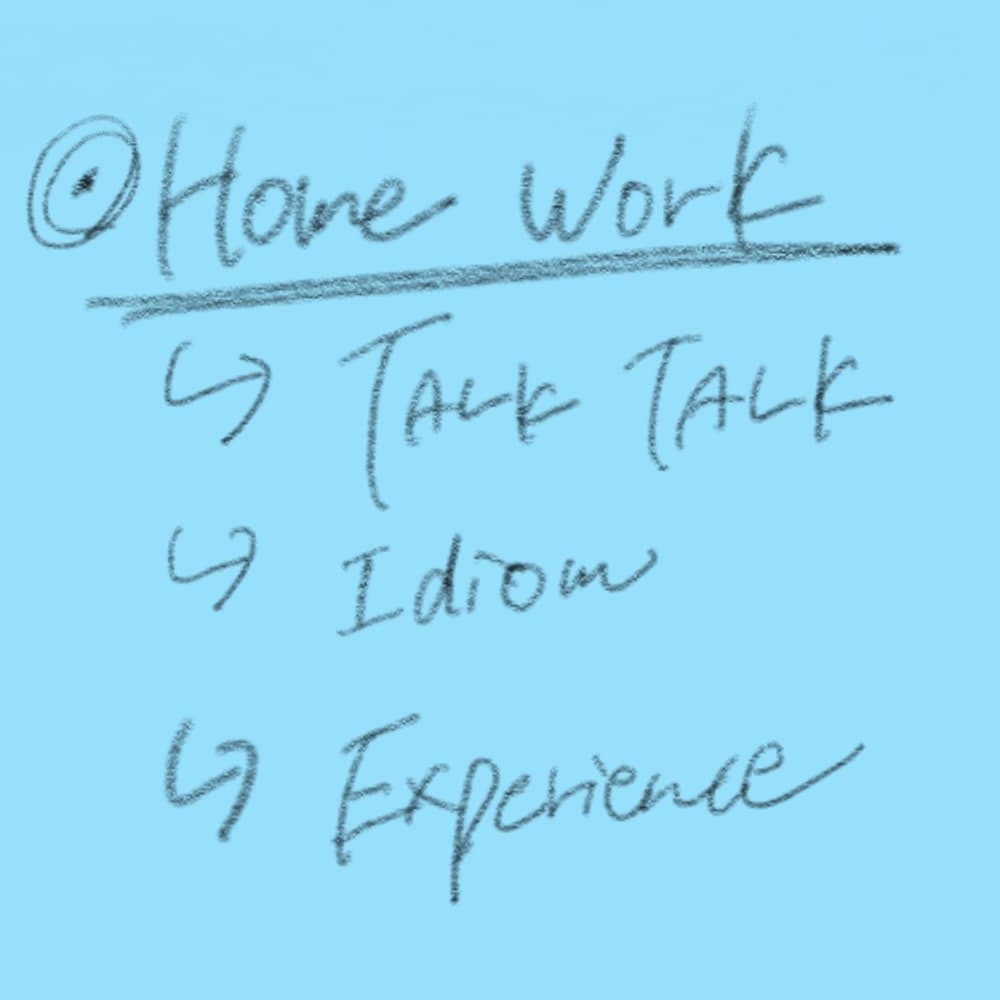 Home Work
TALK TALK
Idiom
Experience